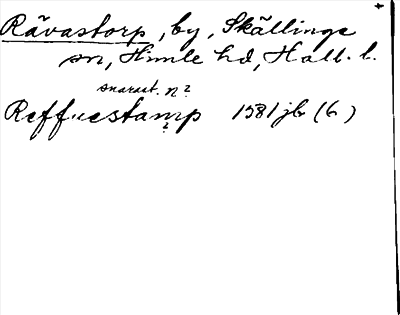 Rävastorp, by, Skällinge
sn, Himle hd, Hall. l.
snarast. n?
Reffuestamp 1581 jb (6)
?